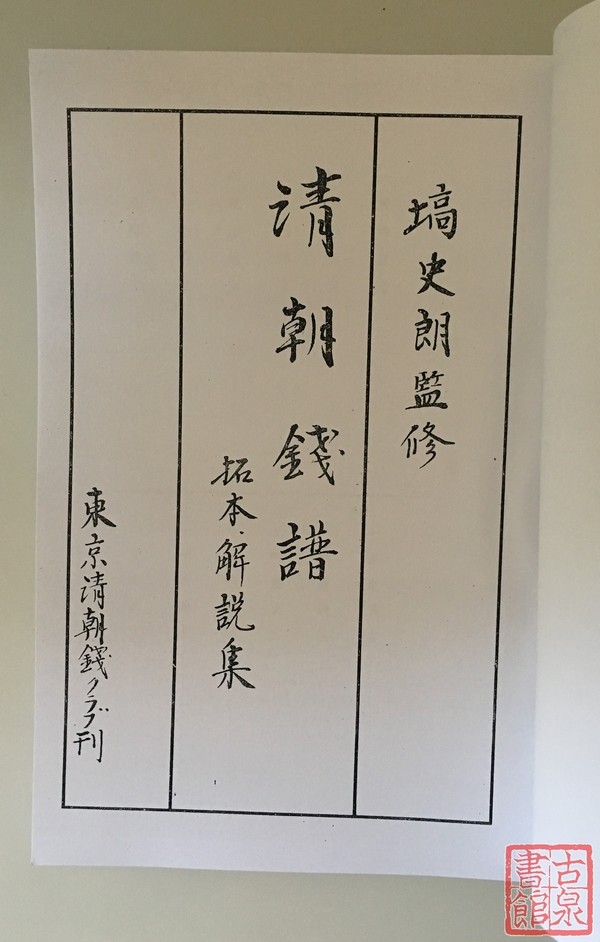 塙史朗監修
清朝錢譜
拓本・解説集
東京清朝錢クラブ刊
古泉書館